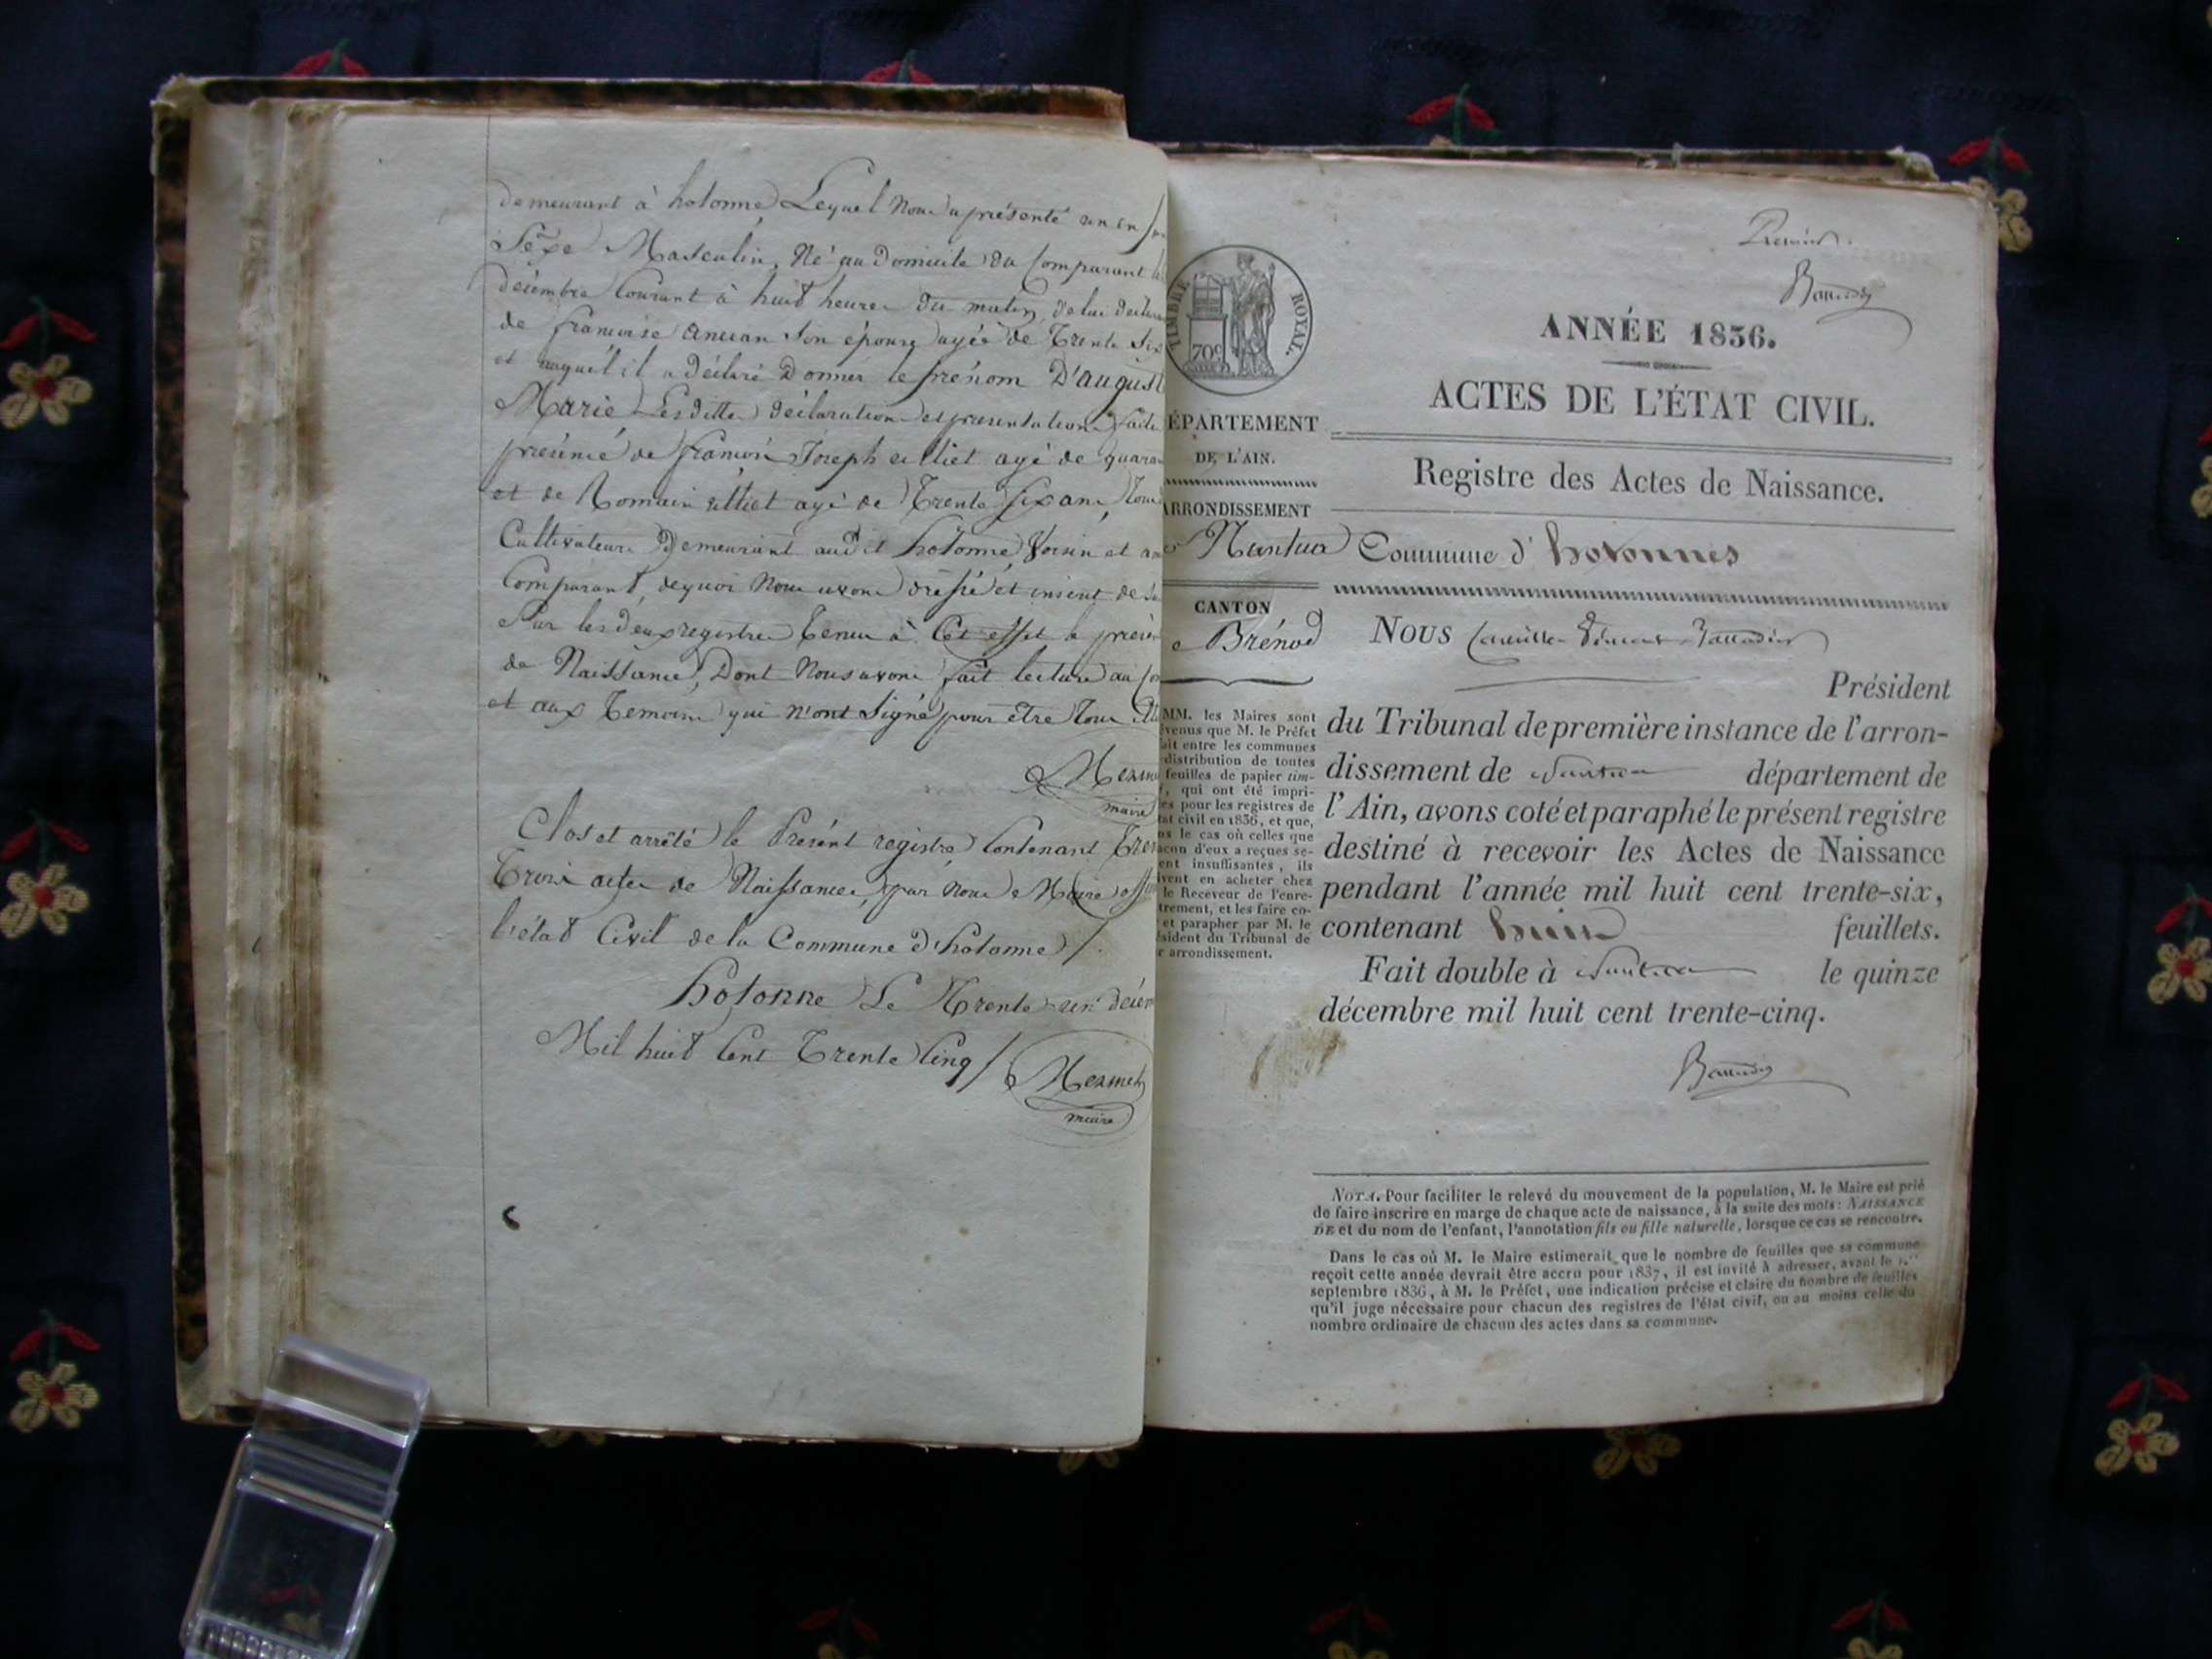 demeurant à hotonne Lequel Nous a présenté un en
Sèxe Masculin, Né au Domicile du Comparant le
décembre Courant à huit heures du matin, de lui déclar
de françoise ancian Son épouse agée de Trente Six
et auquel il a déclaré Donner le prénom D'august
Marie Lesdittes déclaration et présentation faite
présence de françois Joseph agé de quara
et de Romain agé de Trente Six ans, tous
Cultivateurs Demeurant audit hotonne, Voisin et a
Comparant, de quoi Nous avons dréssé et inscrit de
Sur les deux registres tenus à Cet effet le prése
de Naissance, Dont Nous avons fait lecture au Co
et aux Temoins qui n'ont Signé pour être tous
Mermet
maire
Clos et arrêté le Présent registre Contenant Tren
Trois actes de Naissances, par Nous Maire off
l'état Civil de la Commune d'hotonne /.
hotonne Le Trente un décem
Mil huit Cent Trente Cinq /
Mermet
maire
Premier.
TIMBRE ROYAL.
70c
ANNÉE 1836.
ACTES DE L'ÉTAT CIVIL.
ÉPARTEMENT
DE L'AIN.
Registre des Actes de Naissance.
ARRONDISSEMENT
Nantua
Commune d' hotonnes
CANTON
e Brénod
Nous
Président
du Tribunal de première instance de l'arron-
dissement de Nantua département de
l'Ain, avons coté et paraphé le présent registre
destiné à recevoir les Actes de Naissance
pendant l'année mil huit cent trente-six,
contenant huit feuillets.
Fait double à Nantua le quinze
décembre mil huit cent trente-cinq.
MM. les Maires sont
évenus que M. le Préfet
ait entre les communes
distribution de toutes
feuilles de papier tim-
, qui ont été impri-
es pour les registres de
tat civil en 1836, et que,
ns le cas où celles que
acun d'eux a reçues se-
ent insuffisantes, ils
ivent en acheter chez
le Receveur de l'enre-
trement, et les faire co-
et parapher par M. le
ésident du Tribunal de
r arrondissement.
NOTA. Pour faciliter le relevé du mouvement de la population, M. le Maire est prié
de faire inscrire en marge de chaque acte de naissance, à la suite des mots: NAISSANCE
DE et du nom de l'enfant, l'annotation fils ou fille naturelle, lorsque ce cas se rencontre.
Dans le cas où M. le Maire estimerait que le nombre de feuilles que sa commune
reçoit cette année devrait être accru pour 1837, il est invité à adresser, avant le 1.er
septembre 1836, à M. le Préfet, une indication précise et claire du nombre de feuilles
qu'il juge nécessaire pour chacun des registres de l'état civil, ou au moins celle du
nombre ordinaire de chacun des actes dans sa commune.